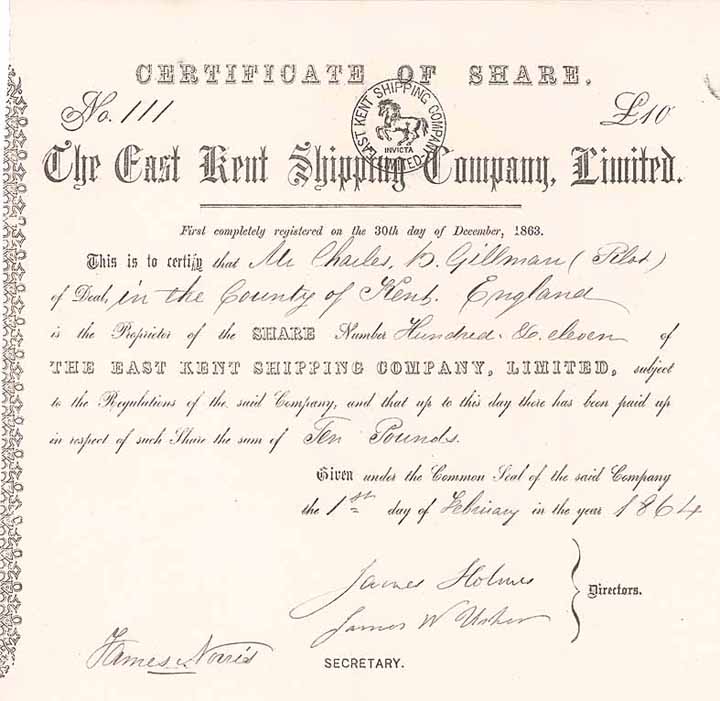 CERTIFICATE OF SHARE.
No. 111
EAST KENT SHIPPING COMPANY LIMITED.
INVICTA
£10
The East Kent Shipping Company, Limited.
First completely registered on the 30th day of December, 1863.
This is to certify that Mr Charles, D. Gillman (Pilot)
of Deal, in the County of Kent. England
is the Proprietor of the SHARE Number Hundred & eleven of
THE EAST KENT SHIPPING COMPANY, LIMITED, subject
to the Regulations of the said Company, and that up to this day there has been paid up
in respect of such Share the sum of Ten Pounds.
Given under the Common Seal of the said Company
the 1st day of February in the year 1864
James Holmes
James W Usher
Directors.
James Norris
SECRETARY.